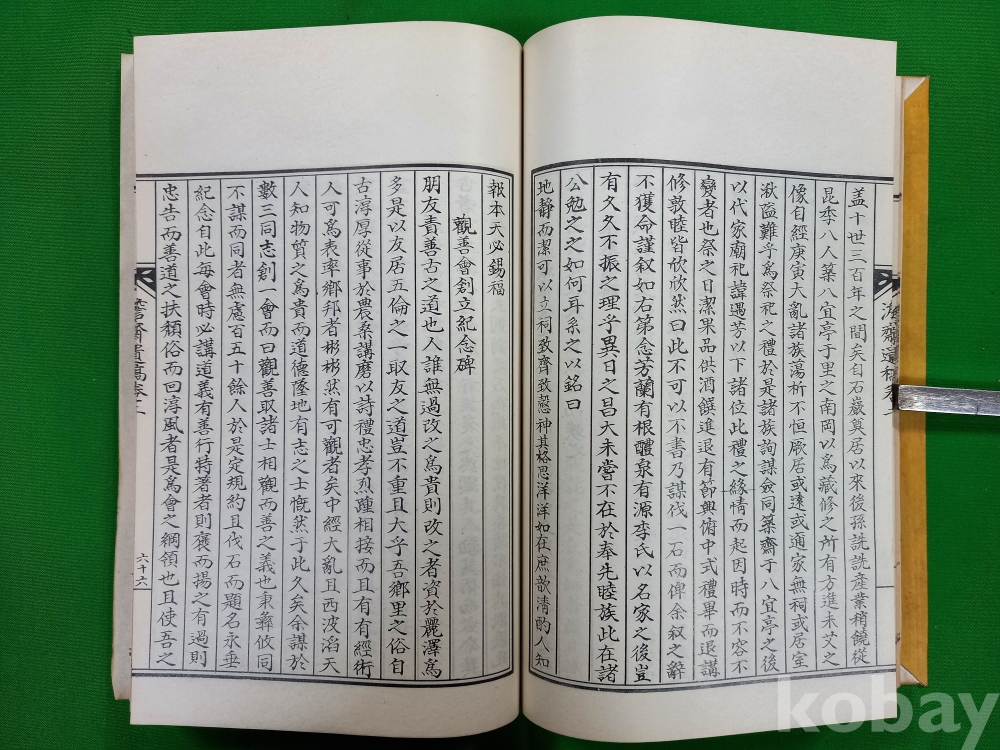 盖十世三百年之間矣自石巖奠居以來後孫詵詵産業稍饒從
昆季八人築八宜亭于里之南岡以爲藏修之所有方進未艾之
像自經庚寅大亂諸族湯析不恒厥居或遠或適家無祠或居室
湫隘難乎爲祭祀之禮於是諸族詢謀僉同築齋于八宜亭之後
以代家廟祀諱遇芳以下諸位此禮之緣情而起因時而不容不
變者也祭之日潔果品供酒饌進退有節興俯中式禮畢而退講
修敦睦皆欣欣然曰此不可以不書乃謀伐一石而俾余叙之辭
不獲命謹叙如右第念芳蘭有根醴泉有源李氏以名家之後豈
有久久不振之理乎異日之昌大未嘗不在於奉先睦族此在諸
公勉之之如何耳系之以銘曰
地靜而潔可以立祠致齊致慤神其格思洋洋如在庶歆淸酌人知
報本天必錫福
觀善會創立紀念碑
朋友責善古之道也人誰無過改之爲貴則改之者資於麗澤爲
多是以友居五倫之一取友之道豈不重且大乎吾鄕里之俗自
古淳厚從事於農桑講磨以詩禮忠孝烈踵相接而且有有經術
人可爲表率鄕邦者彬彬然有可觀者矣中經大亂且西波滔天
人知物質之爲貴而道德隆地有志之士慨然于此久矣余謀於
數三同志創一會而曰觀善取諸士相觀而善之義也秉彛攸同
不謀而同者無慮百五十餘人於是定規約且伐石而題名永垂
紀念自此每會時必講道義有善行特著者則褒而揚之有過則
忠告而善道之扶頹俗而回淳風者是爲會之綱領也且使吾之
齋遺稿卷二
六十六